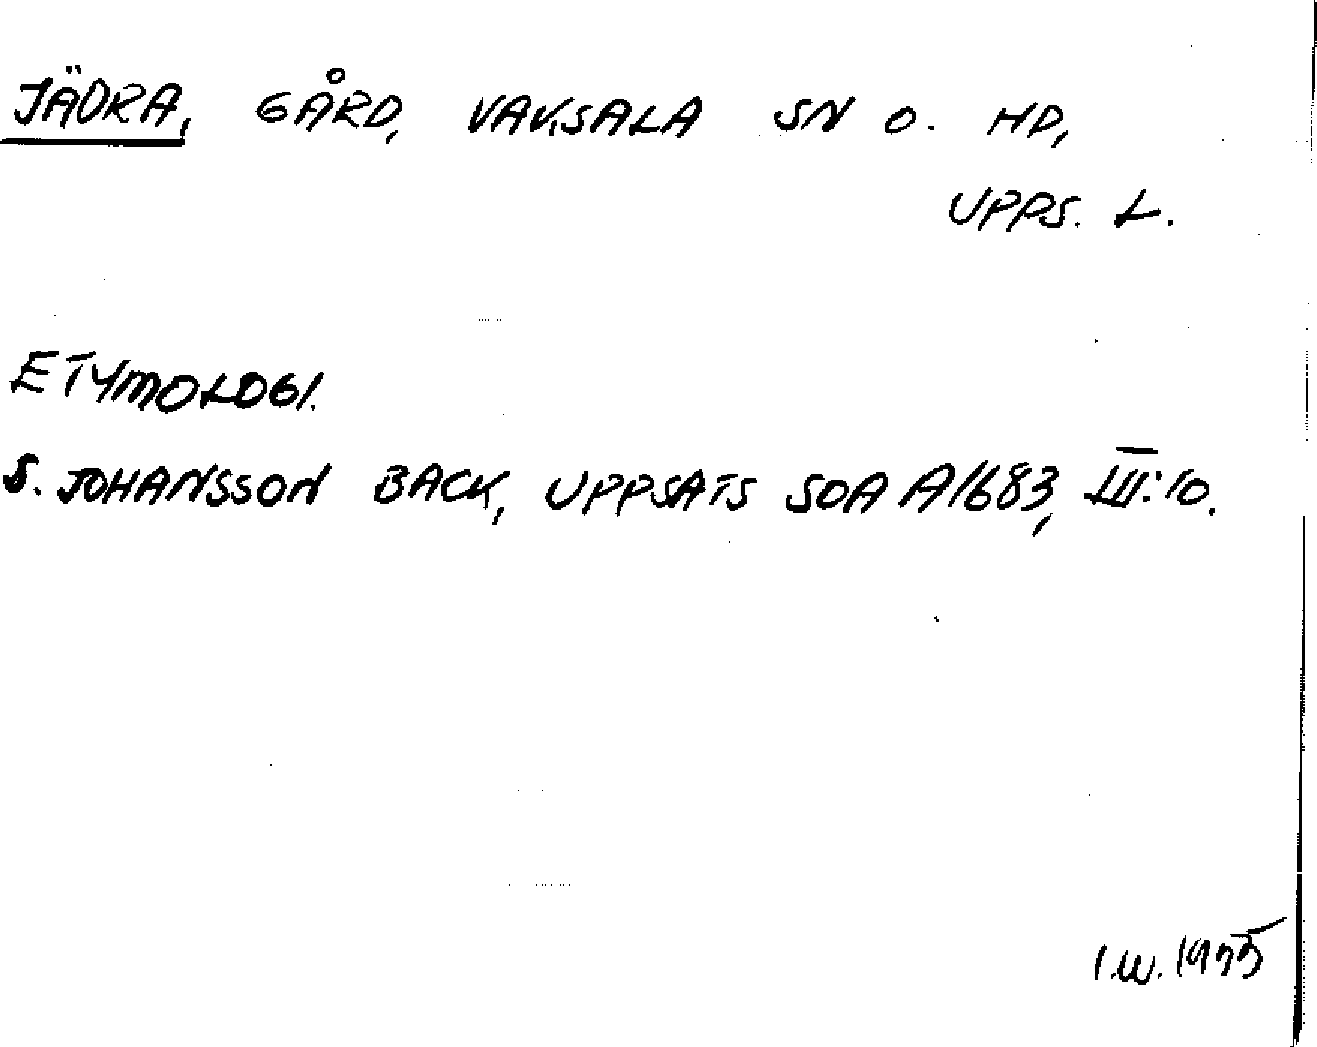 JÄDRA, GÅRD, VAKSALA SN O. HD,
UPPS. L.
ETYMOLOGI.
S. JOHANSSON BACK, UPPSATS SOA A1683, III:10.
I.W. 1975